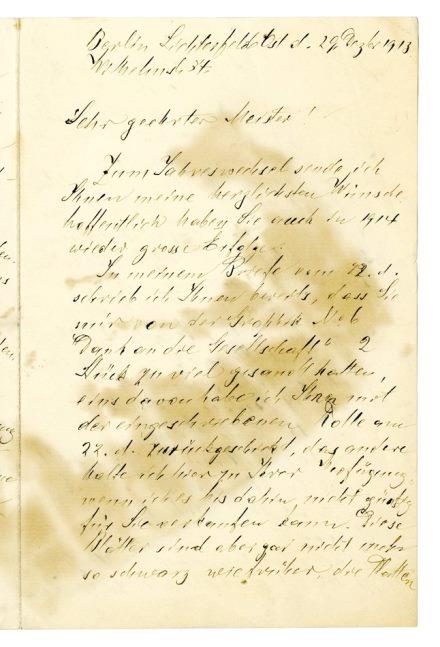 Berlin Lichterfelde Ost d. 29 Dezbr 1913
Wilhelmstr. 34.
Sehr geehrter Meister!
Zum Jahreswechsel sende ich
Ihnen meine herzlichsten Wünsche,
hoffentlich haben Sie auch in 1914
wieder grosse Erfolge.
In meinem Briefe vom 12. d.
schrieb ich Ihnen bereits, dass Sie
mir von der Graphik
Dank an die Gesellschaft" 2
Stück zu viel gesandt hatten,
eins davon habe ich Ihnen mit
der eingeschriebenen Rolle am
22. d. zurückgeschickt, das andere
halte ich hier zu Ihrer Verfügung,
wenn ich es bis dahin nicht
für Sie verkaufen kann. Diese
Blätter sind aber gar nicht mehr
so schwarz wie früher, die Platten